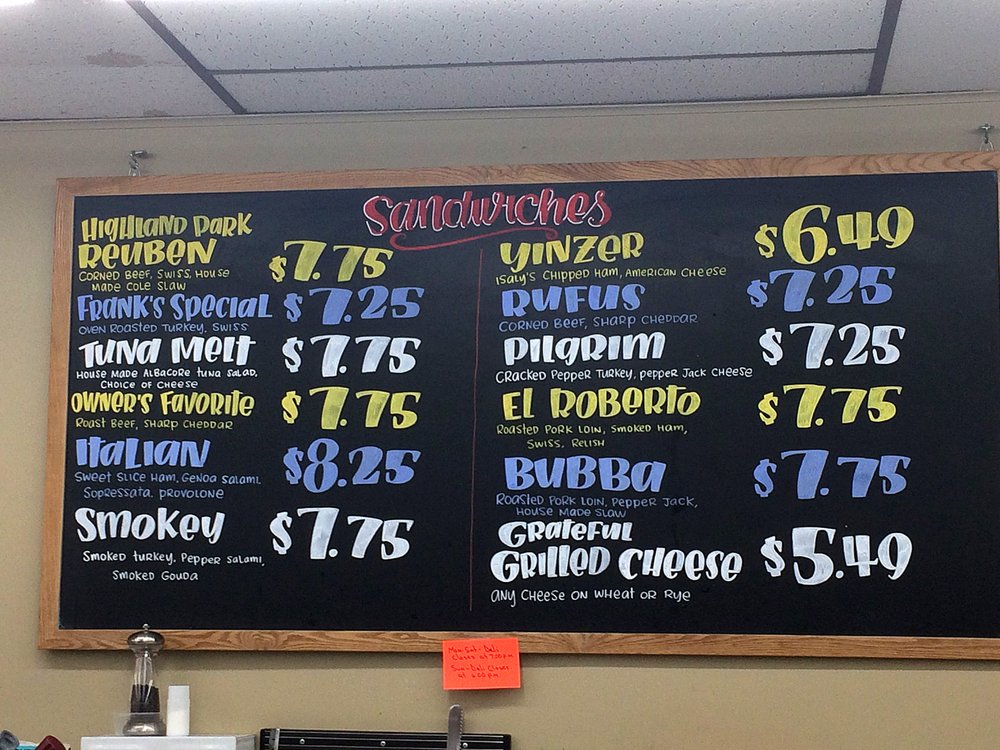 Sandwiches
Highland Park
Reuben $7.75
Corned Beef, Swiss, House
Made Cole Slaw
Frank's Special $7.25
Oven Roasted Turkey, Swiss
Tuna Melt $7.75
House Made Albacore Tuna Salad,
Choice of Cheese
Owner's Favorite $7.75
Roast Beef, Sharp Cheddar
Italian $8.25
Sweet Slice Ham, Genoa Salami,
Sopressata, Provolone
Smokey $7.75
Smoked Turkey, Pepper Salami,
Smoked Gouda
Yinzer $6.49
Isaly's Chipped Ham, American Cheese
Rufus $7.25
Corned Beef, Sharp Cheddar
Pilgrim $7.25
Cracked Pepper Turkey, Pepper Jack Cheese
El Roberto $7.75
Roasted Pork Loin, Smoked Ham,
Swiss, Relish
Bubba $7.75
Roasted Pork Loin, Pepper Jack,
House Made Slaw
Grateful
Grilled Cheese $5.49
Any Cheese on Wheat or Rye
Mon-Sat - Deli
Closes at 7:00pm
Sun - Deli Closes
at 6:00 pm